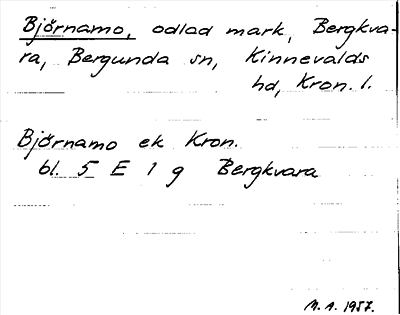 Björnamo, odlad mark, Bergkva-
ra, Bergunda sn, Kinnevalds
hd, Kron. l.
Björnamo ek Kron.
bl. 5 E 1 g Bergkvara
M. A. 1957.